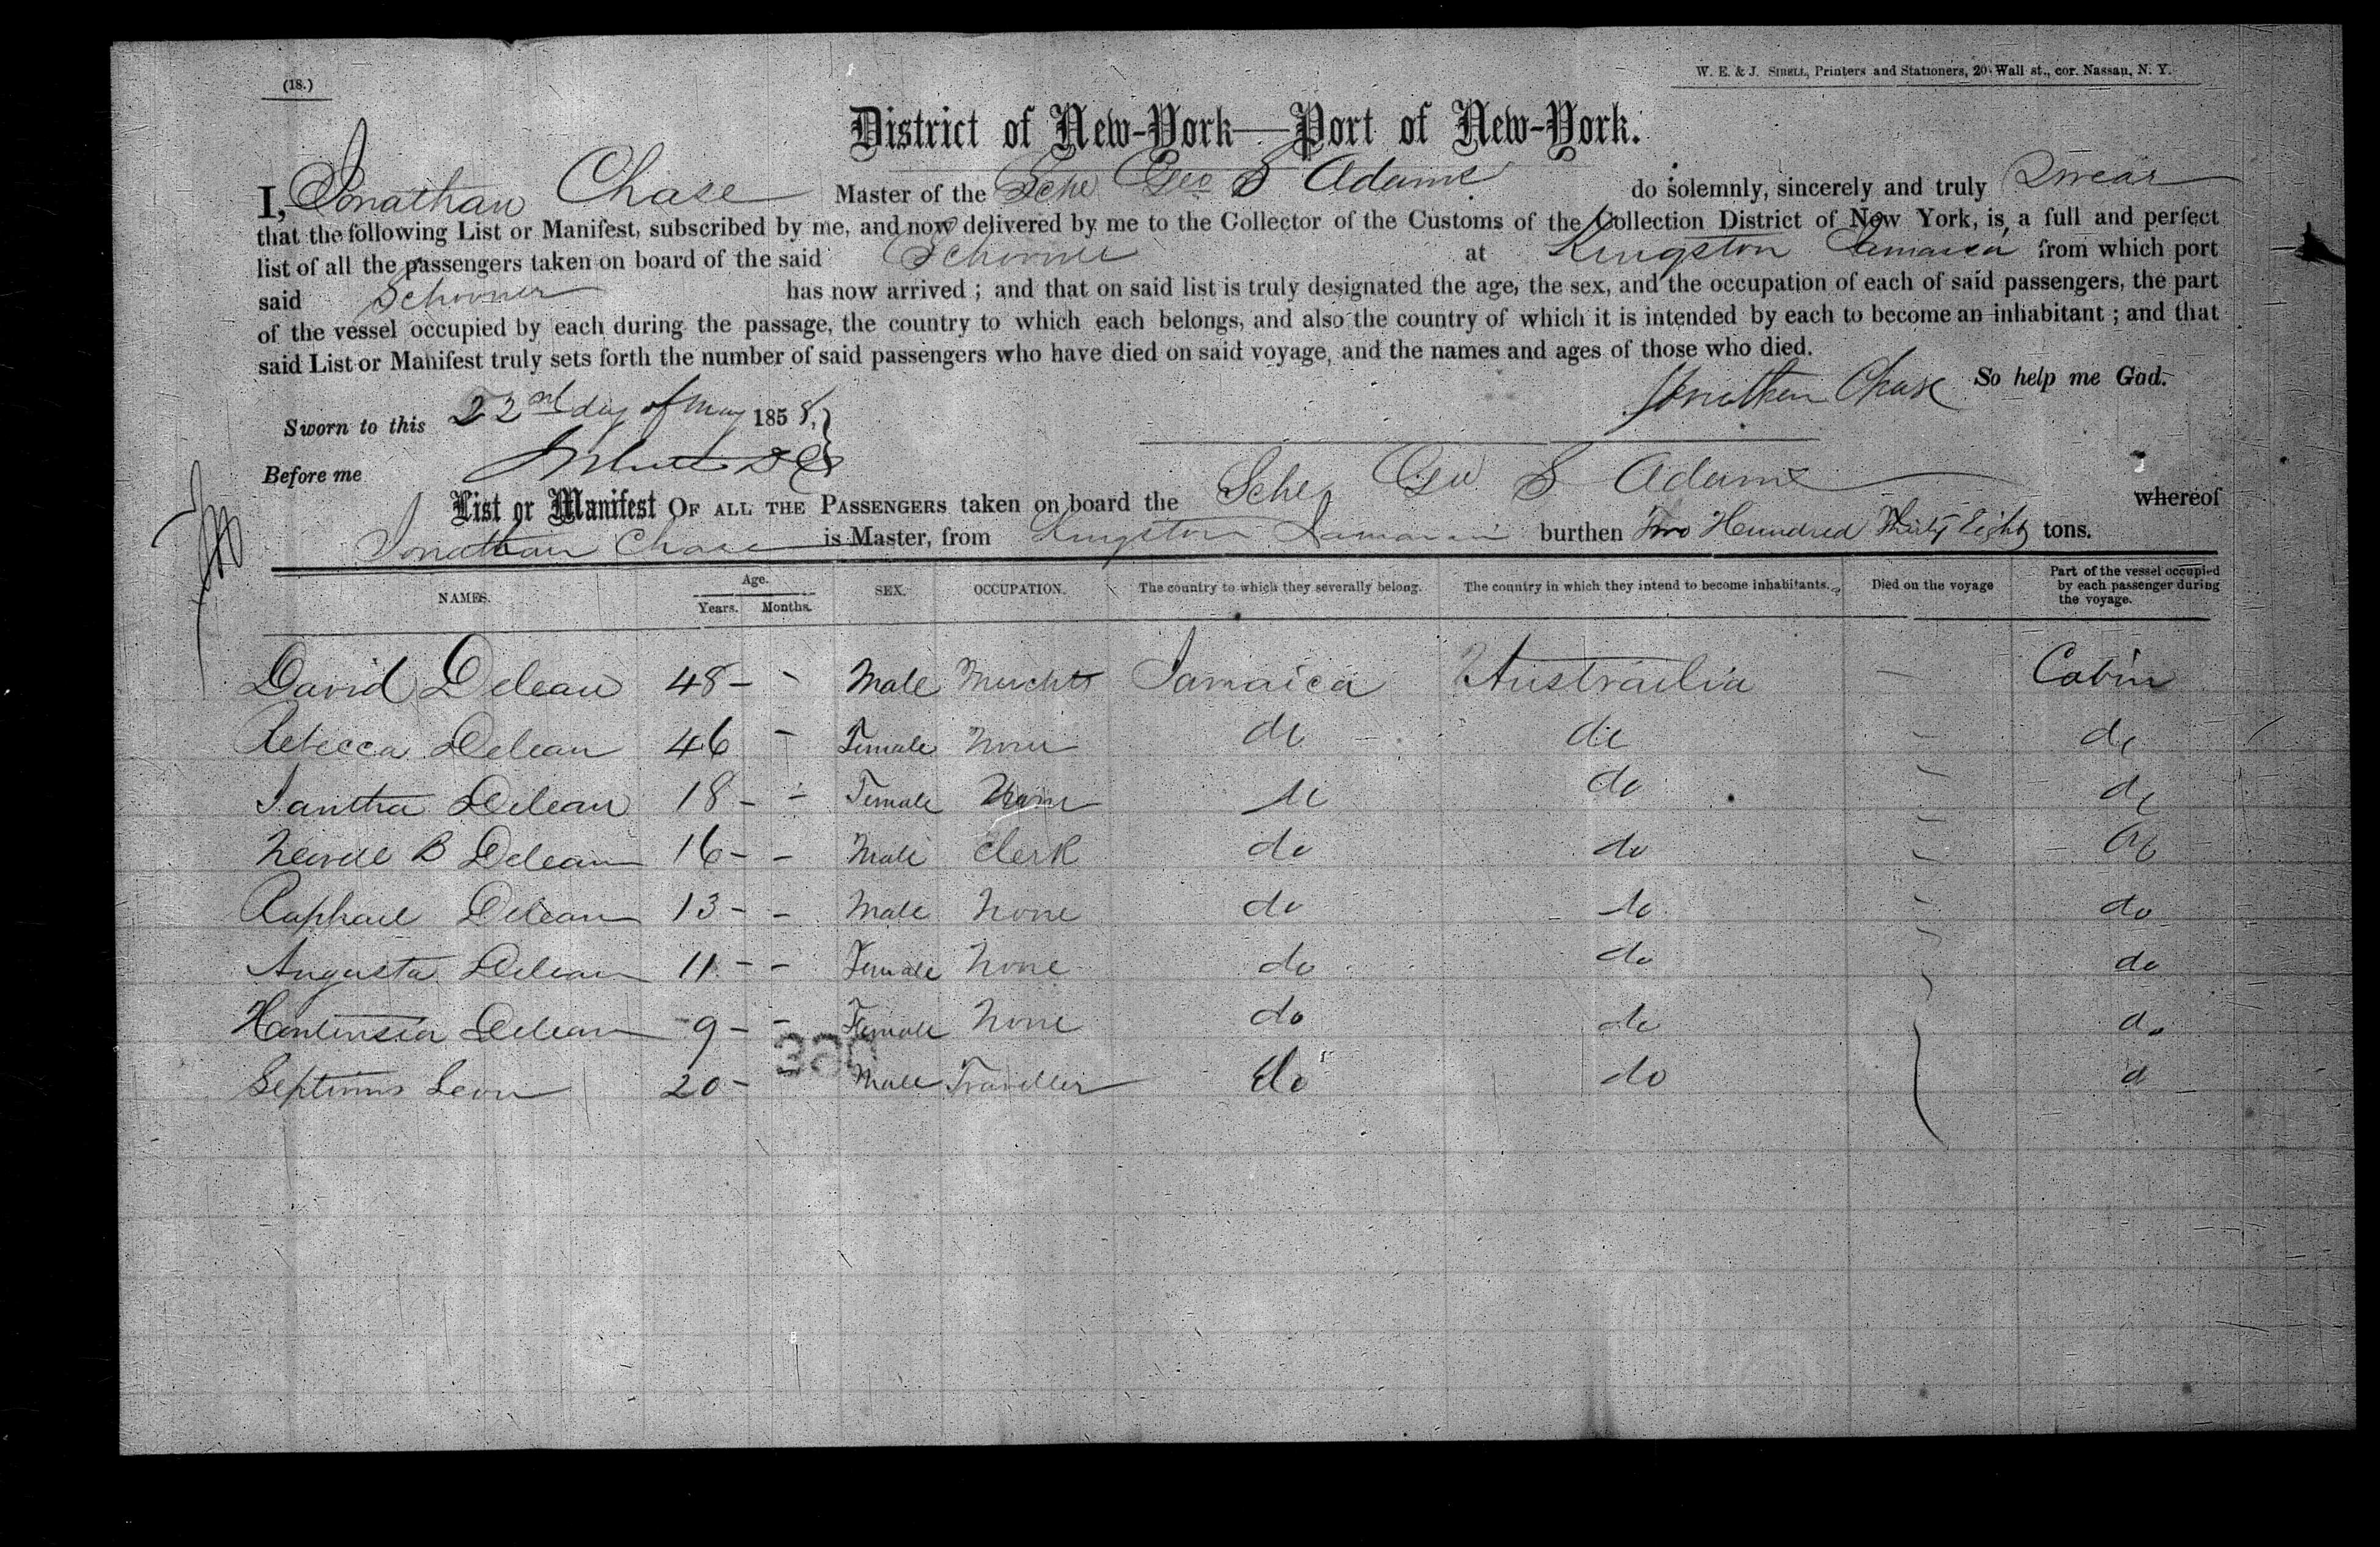 (18.)
W. E. & J. SIBELL, Printers and Stationers, 20 Wall st., cor. Nassau, N. Y.
District of New-York—Port of New-York.
I, Jonathan Chase Master of the Schr Geo S Adams do solemnly, sincerely and truly Swear
that the following List or Manifest, subscribed by me, and now delivered by me to the Collector of the Customs of the Collection District of New York, is a full and perfect
list of all the passengers taken on board of the said Schooner at Kingston Jamaica from which port
said Schooner has now arrived; and that on said list is truly designated the age, the sex, and the occupation of each of said passengers, the part
of the vessel occupied by each during the passage, the country to which each belongs, and also the country of which it is intended by each to become an inhabitant; and that
said List or Manifest truly sets forth the number of said passengers who have died on said voyage, and the names and ages of those who died.
Jonathan Chase So help me God.
Sworn to this 22nd day of May 1858,
Before me
List or Manifest OF ALL THE PASSENGERS taken on board the Schr Geo S Adams whereof
Jonathan Chase is Master, from Kingston Jamaica burthen Two Hundred Thirty Eight tons.
NAMES. Age. Years. Months. SEX. OCCUPATION. The country to which they severally belong. The country in which they intend to become inhabitants. Died on the voyage Part of the vessel occupied by each passenger during the voyage.
David Deleau 48 - - Male Merchts Jamaica Australia — Cabin
Rebecca Deleau 46 - Female None do do - do
Iantha Deleau 18 - - Female None do do - do
B Deleau 16 - - Male Clerk do do - do
Raphael Deleau 13 - - Male None do do - do
Augusta Deleau 11 - - Female None do do - do
Deleau 9 - - Female None do do do
Septimus Leon 20 - Male Traveller do do d